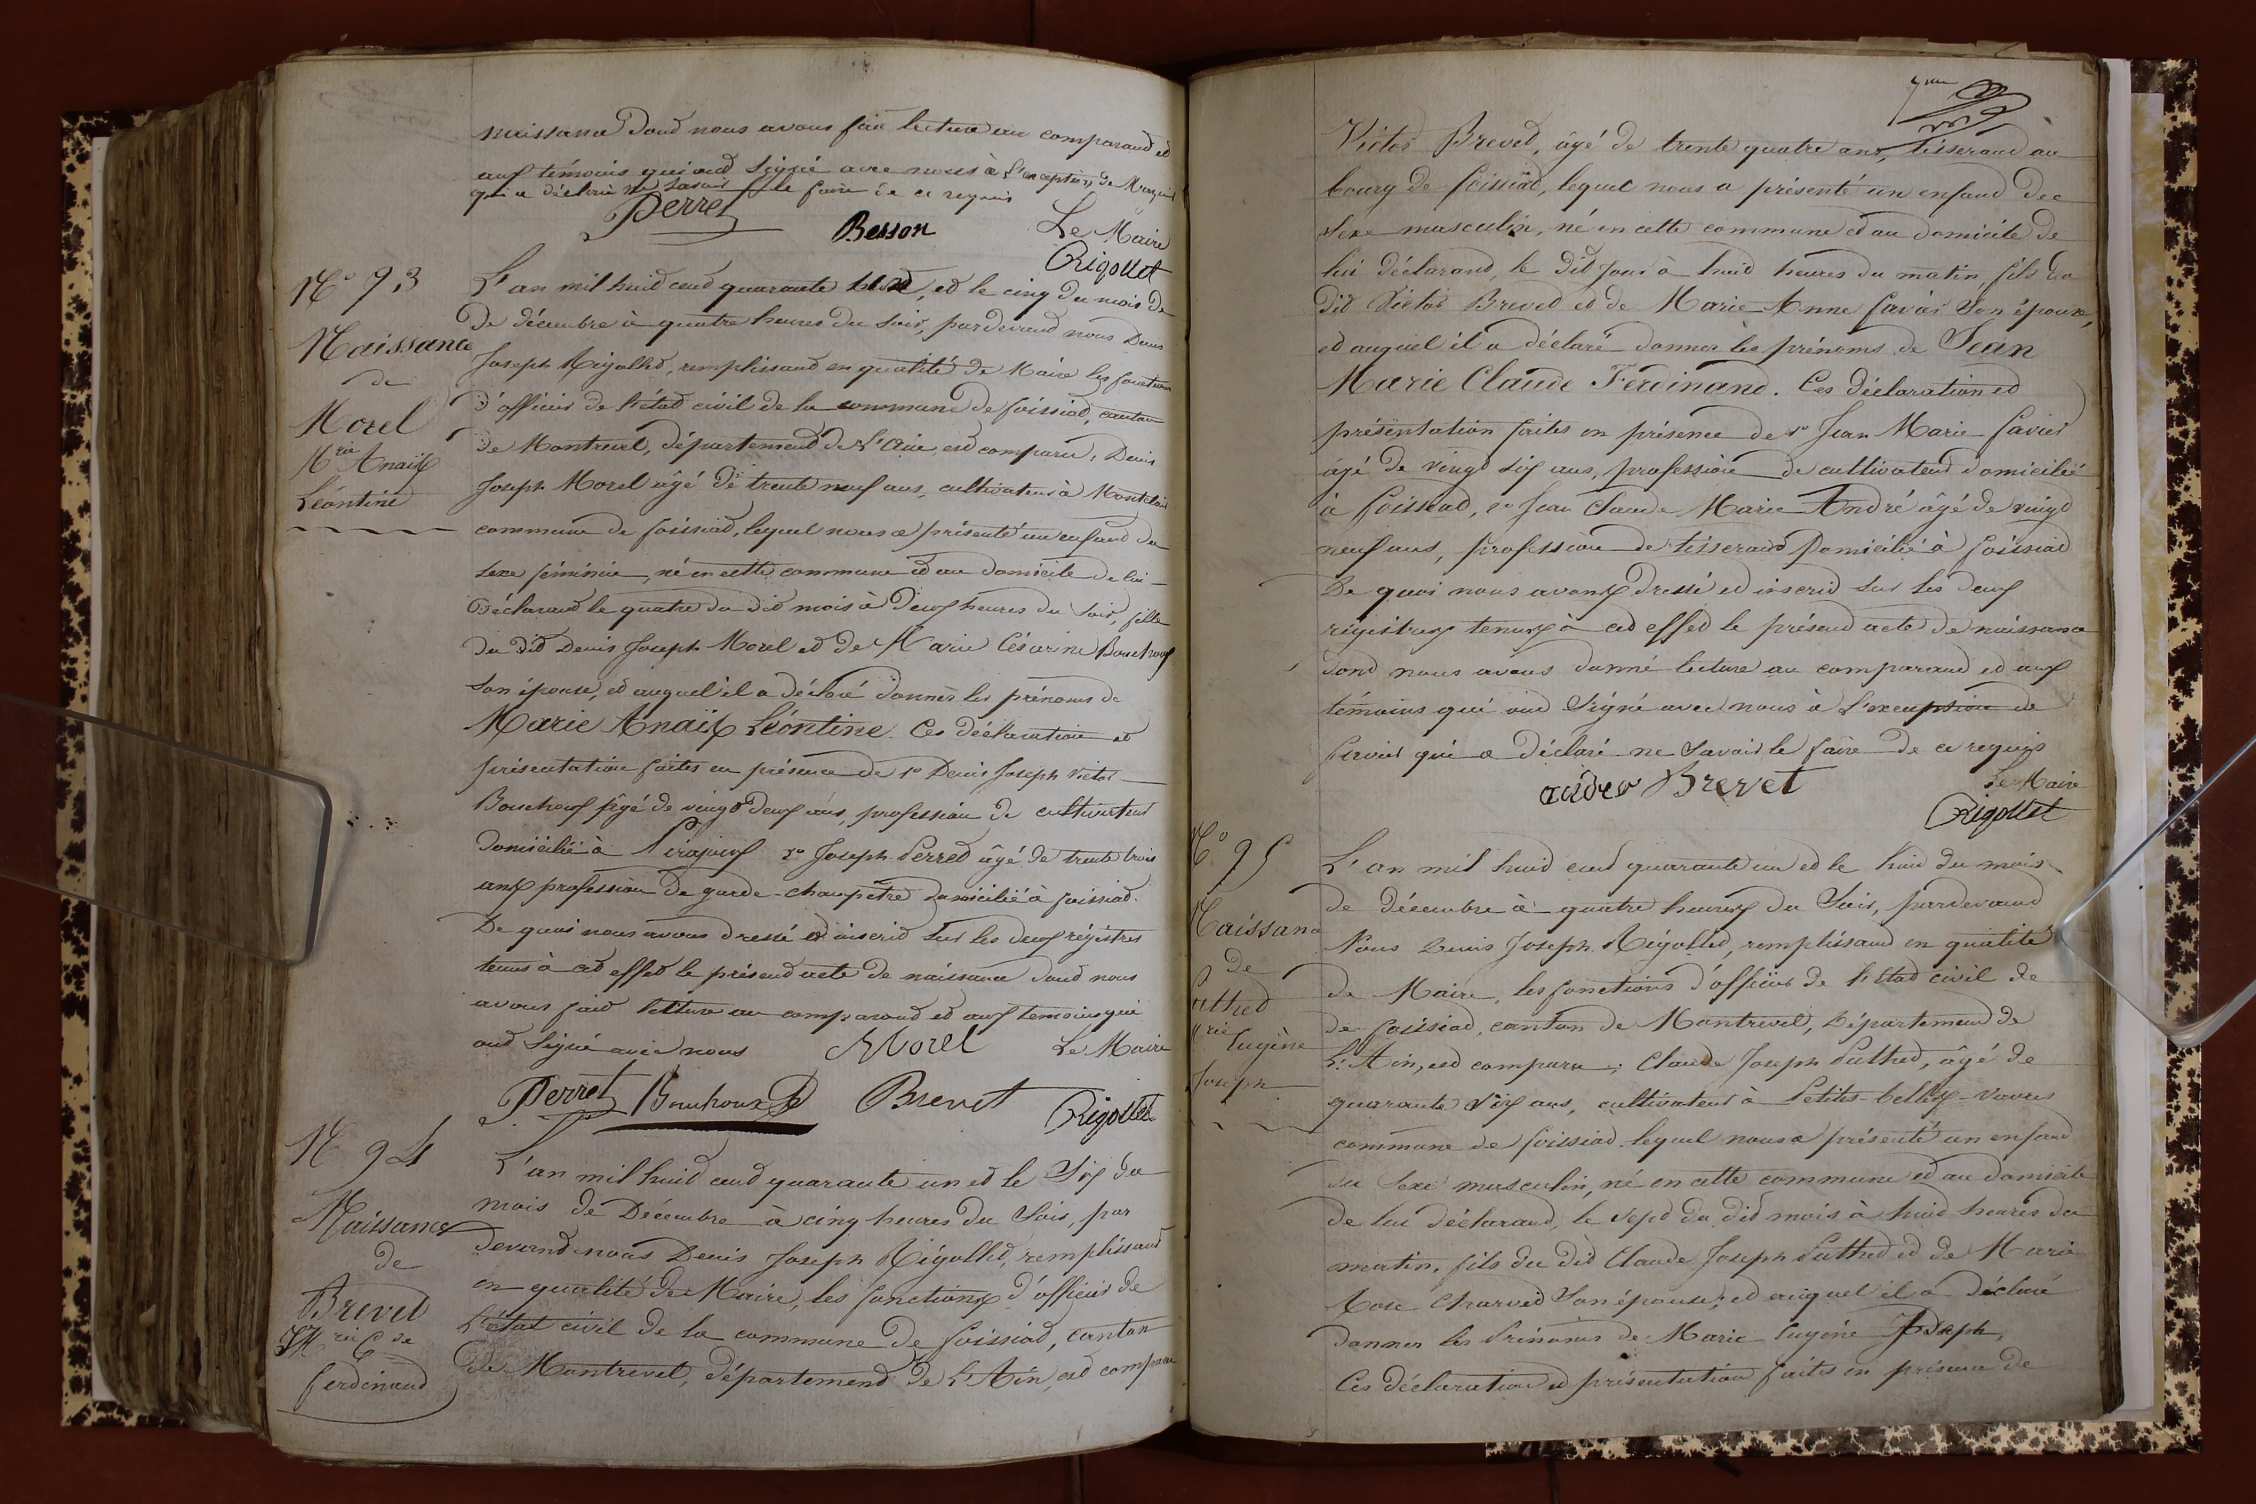 naissance dont nous avons fait lecture au comparant et
aux témoins qui ont signé avec nous à l'exception de
qui a déclaré ne savoir le faire de ce requis
Perret
Besson
Le Maire
Rigollet
N° 93
Naissance
de
Morel
Mrie Anaïx
Léontine
L'an mil huit cent quarante un, et le cinq du mois de
de décembre à quatre heures du soir, pardevant nous Denis
Joseph Rigollet, remplissant en qualité de Maire les fonctions
d'officier de l'état civil de la commune de foissiat, canton
de Montrevel, département de l'Ain, est comparu, Denis
Joseph Morel âgé de trente neuf ans, cultivateur à
commune de foissiat, lequel nous a présenté un enfant du
sexe féminin, né en cette commune et au domicile de lui
déclarant le quatre du dit mois à deux heures du soir, fille
du dit Denis Joseph Morel et de Marie Césarine Bouchoux
son épouse, et auquel il a déclaré donner les prénoms de
Marie Anaïx Léontine. Ces déclaration et
présentation faites en présence de 1° Denis Joseph Victor
Bouchoux âgé de vingt deux ans, profession de cultivateur
domicilié à Pirajoux 2° Joseph Perret âgé de trente trois
ans profession de garde-champêtre domicilié à foissiat.
De quoi nous avons dressé et inscrit sur les deux régistres
tenus à cet effet le présent acte de naissance dont nous
avons fait lecture au comparant et aux temoins qui
ont signé avec nous
Morel
Le Maire
Perret Bouchoux Brevet Rigollet
N° 94
Naissance
de
Brevet
J M rie C de
ferdinand
L'an mil huit cent quarante un et le Six du
mois de Décembre à cinq heures du Soir, par
devant nous Denis Joseph Rigollet, remplissant
en qualité de Maire, les fonctions d'officier de
L'état civil de la commune de foissiat, canton
de Montrevel, département de L'Ain, est comparu
7me
Victor Brevet, âgé de trente quatre ans, tisserand au
bourg de foissiat, lequel nous a présenté un enfant du
sexe masculin, né en cette commune et au domicile de
lui déclarant, le dit jour à huit heures du matin, fils du
dit Victor Brevet et de Marie Anne favier Son épouse,
et auquel il a déclaré donner les prénoms de Jean
Marie Claude Ferdinand. Ces déclaration et
présentation faites en présence de 1° Jean Marie favier
âgé de vingt six ans, profession de cultivateur domicilié
à foissiat, 2° Jean Claude Marie André âgé de vingt
neuf ans, profession de tisserand domicilié à foissiat
De quoi nous avons dressé et inscrit sur les deux
régistres tenus à cet effet le présent acte de naissance
dont nous avons donné lecture au comparant et aux
témoins qui ont Signé avec nous à l'exeuption de
favier qui a déclaré ne Savoir le faire de ce requis
andre Brevet
Le Maire
Rigollet
N° 95
Naissance
de
Puthet
Mrie Eugène
Joseph
L'an mil huit cent quarante un et le huit du mois
de décembre à quatre heures du Soir, pardevant
Nous Denis Joseph Rigollet, remplissant en qualité
de Maire, les fonctions d'officier de l'état civil de
de foissiat, canton de Montrevel, Département de
L'Ain, est comparu; Claude Joseph Puthet, âgé de
quarante Six ans, cultivateur à Petites-belles-Vavres
commune de foissiat lequel nous a présenté un enfant
du Sexe masculin, né en cette commune et au domicile
de lui déclarant, le Sept du dit mois à huit heures du
matin, fils du dit Claude Joseph Puthet et de Marie
Rose Charvet Son épouse, et auquel il a déclaré
donner les Prénoms de Marie Eugène Joseph,
Ces déclaration et présentation faites en présence de